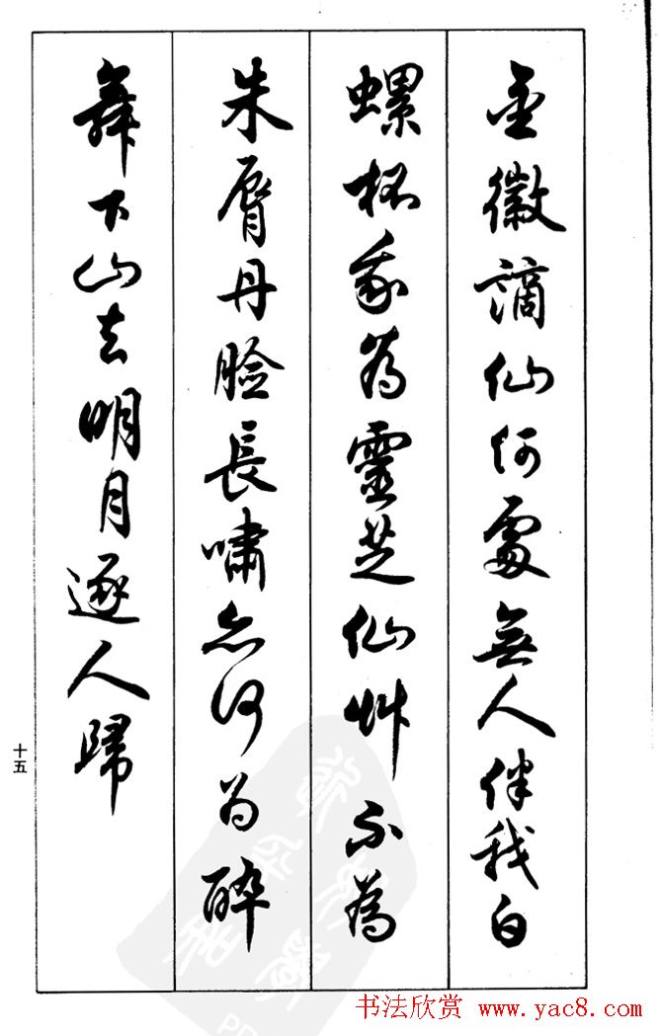 金徽謫仙何處無人伴我白
螺杯我為靈芝仙艸不為
朱脣丹臉長嘯亦何為醉
舞下山去明月逐人歸
十五
书法欣赏 www.yac8.com